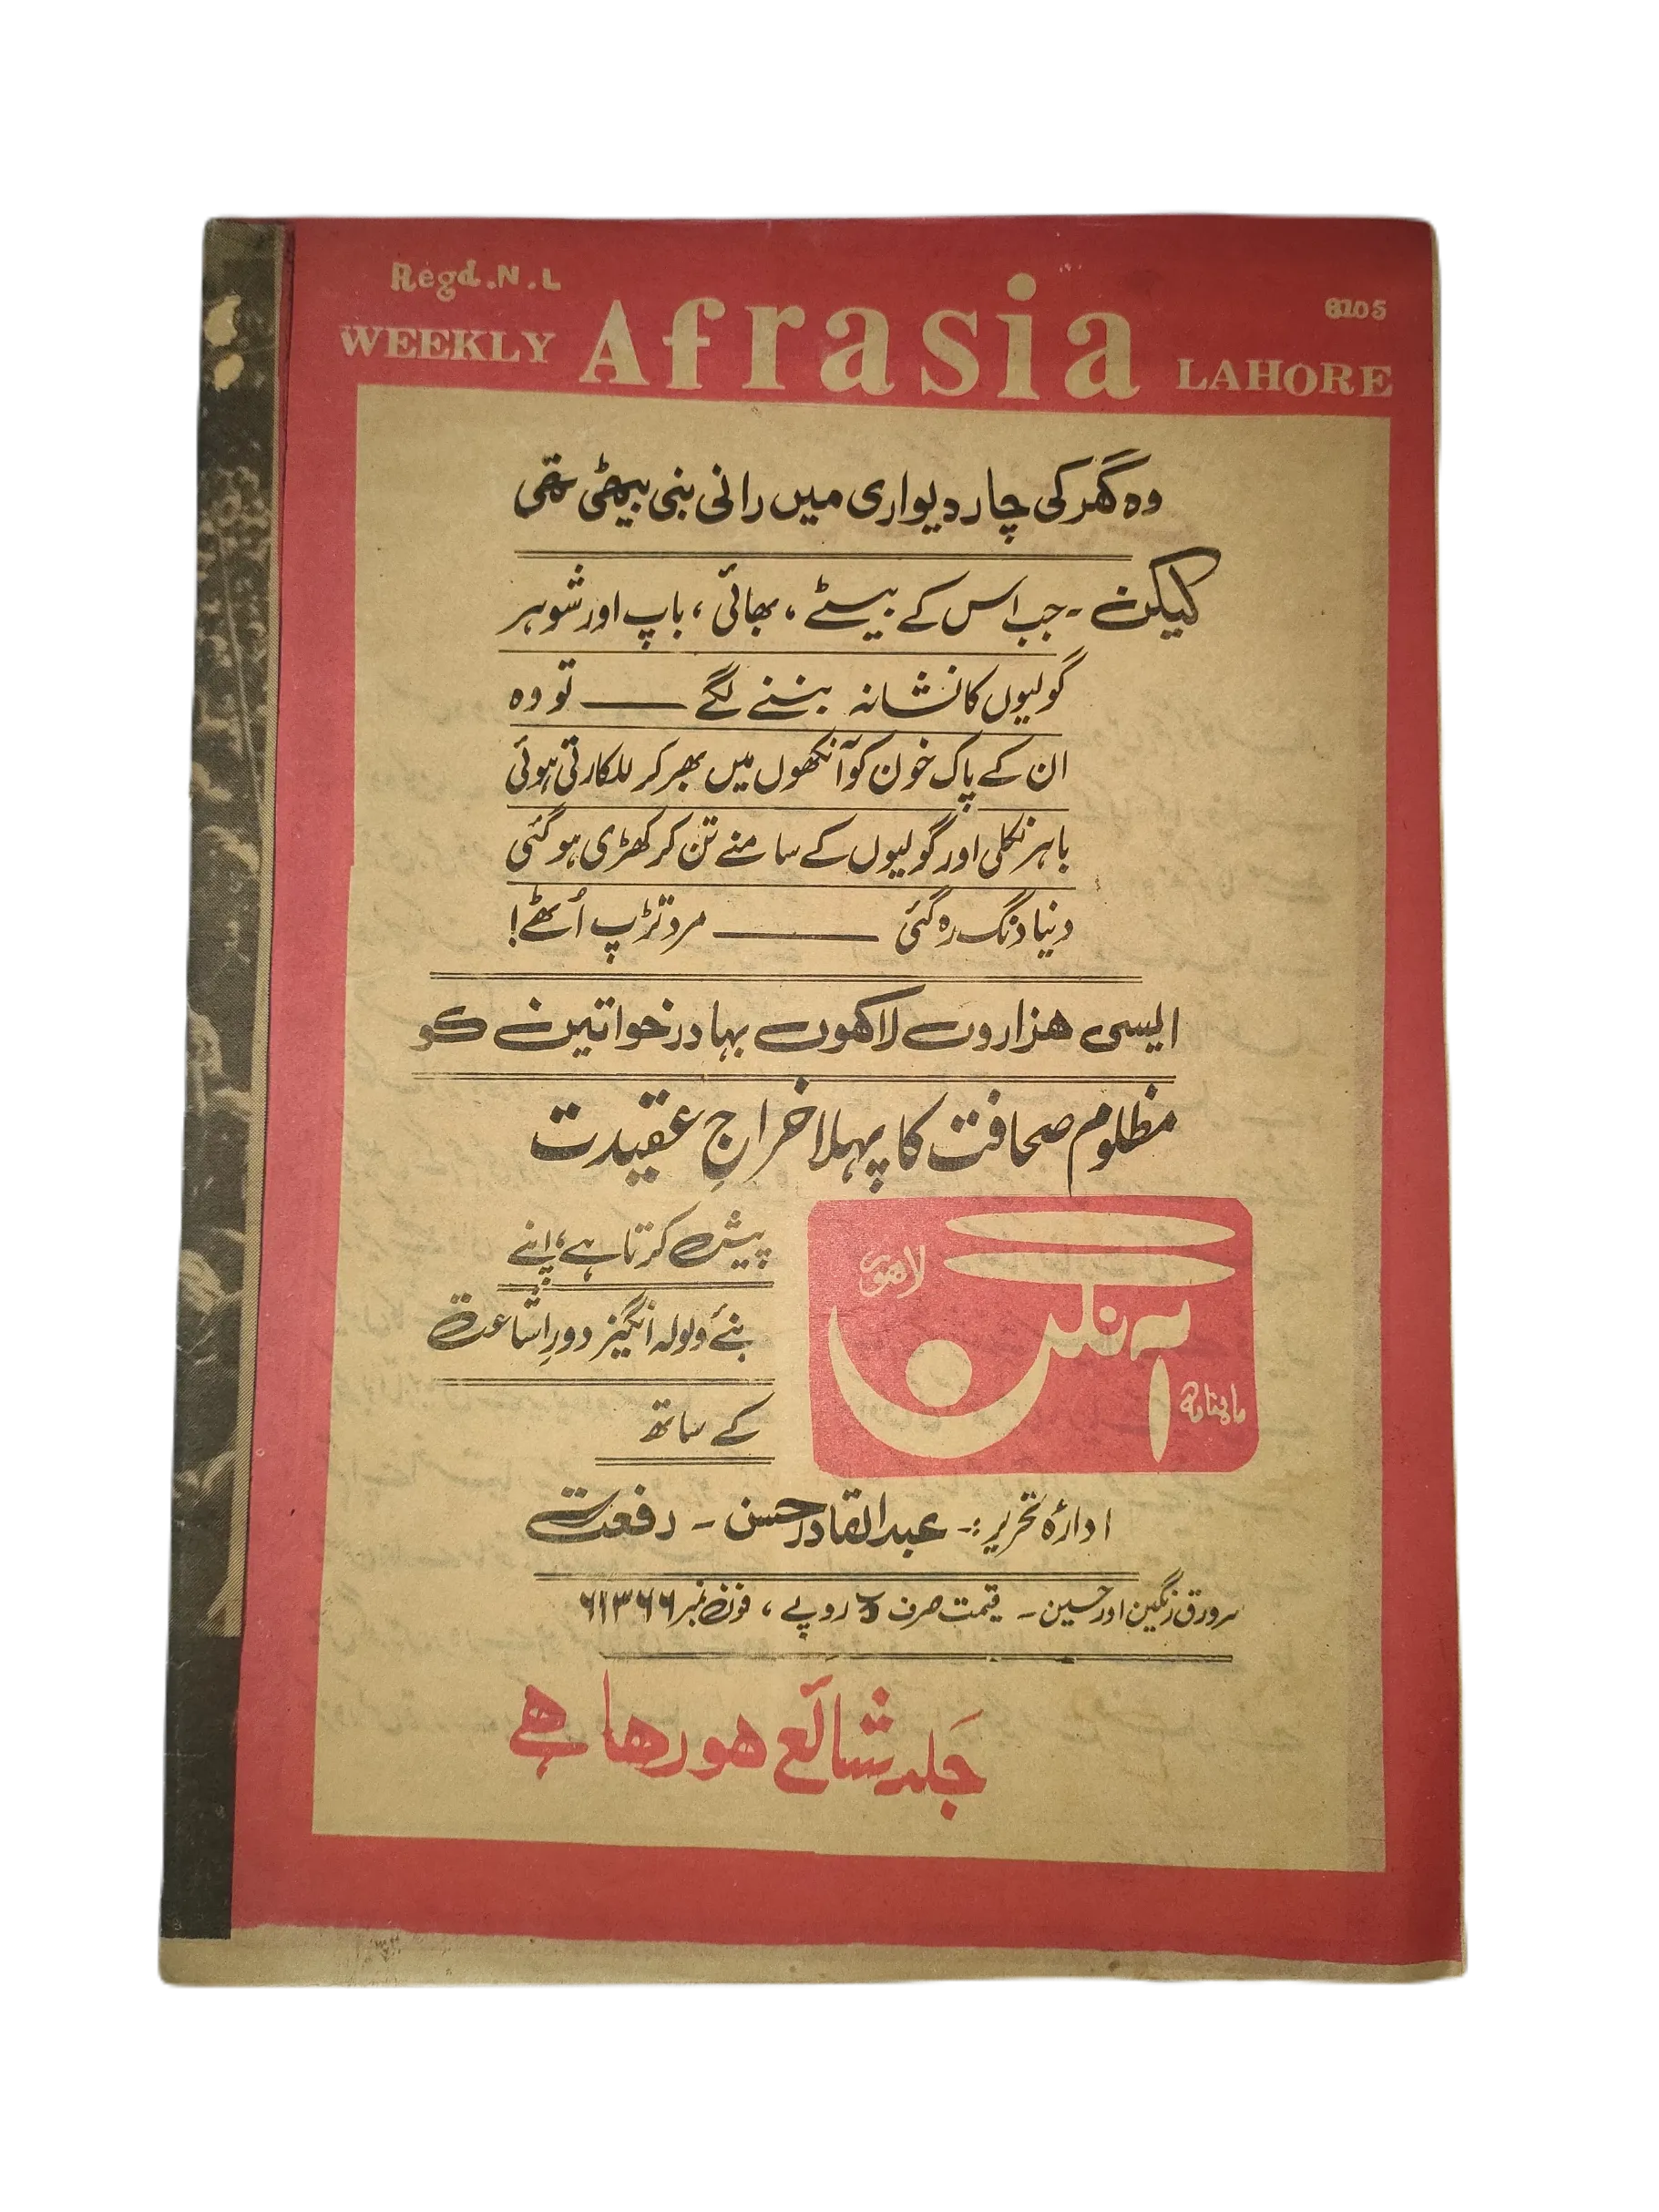 Regd.N.L
6105
WEEKLY Afrasia LAHORE
وہ گھر کی چار دیواری میں رانی بنی بیٹھی تھی
لیکن ۔ جب اس کے بیٹے ، بھائی ، باپ اور شوہر
گولیوں کا نشانہ بننے لگے ــــــ تو وہ
ان کے پاک خون کو آنکھوں میں بھر کر للکارتی ہوئی
باہر نکلی اور گولیوں کے سامنے تن کر کھڑی ہو گئی
دنیا دنگ رہ گئی ــــــــــ مرد تڑپ اُٹھے!
ایسی ھزاروں لاکھوں بہادر خواتین کو
مظلوم صحافت کا پہلا خراجِ عقیدت
ماہنامہ آہنگن لاھور
پیش کرتا ہے، اپنے
نئے ولولہ انگیز دورِ اشاعت
کے ساتھ
ادارۂ تحریر :- عبدالقادر حسن - رفعت
سرورق رنگین اور حسین - قیمت صرف ۵ روپے ، فون نمبر ۶۱۳۶۶
جَلد شائع ھو رھا ھے